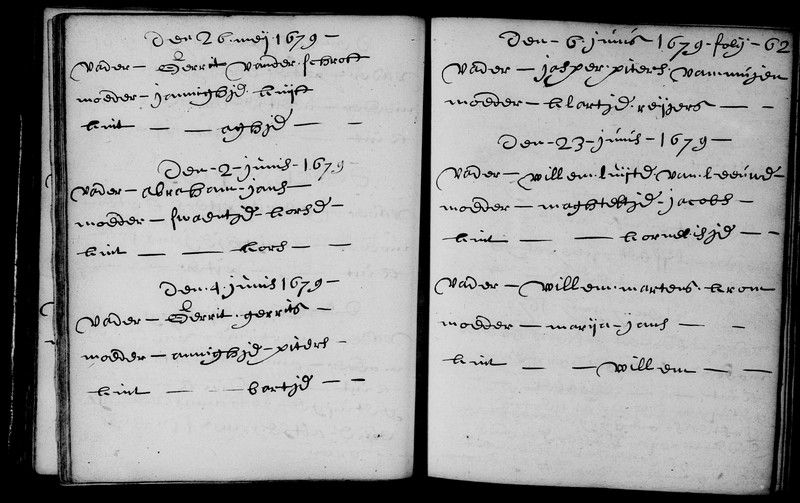 Den 26 meij 1679 —
vader — Gerrit vander schrott
moeder — jannighjd kuijt
kint — — aghjd — —
Den — 2 — junis — 1679
vader — abraham — jans —
moeder — swaentjd korsd —
kint — — kors — —
Den 4 junis 1679 —
vader — Gerrit gerrits —
moeder — annighjd — piters —
kint — — bartjd — —
Den — 6 — junis 1679 folij — 62
vader — jasper piters van muijen
moeder — klartjd reijers — —
Den — 23 — junis — 1679 —
vader — willem luijtd van leeuwd —
moeder — maghteltjd jacobs —
kint — — kornelisjd — —
vader — willem martens krom
moeder — marija — jans — —
kint — — willem — —